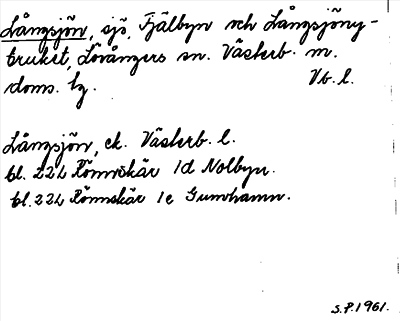 Långsjön, sjö, Fjälbyn och Långsjöny-
bruket, Lövångers sn. Västerb. m.
doms. hg. Vb. l.
Långsjön, ek. Västerb. l.
bl. 22L Rönnskär 1d Nolbyn.
bl. 22L Rönnskär 1e Gumhamn.
S.P. 1961.